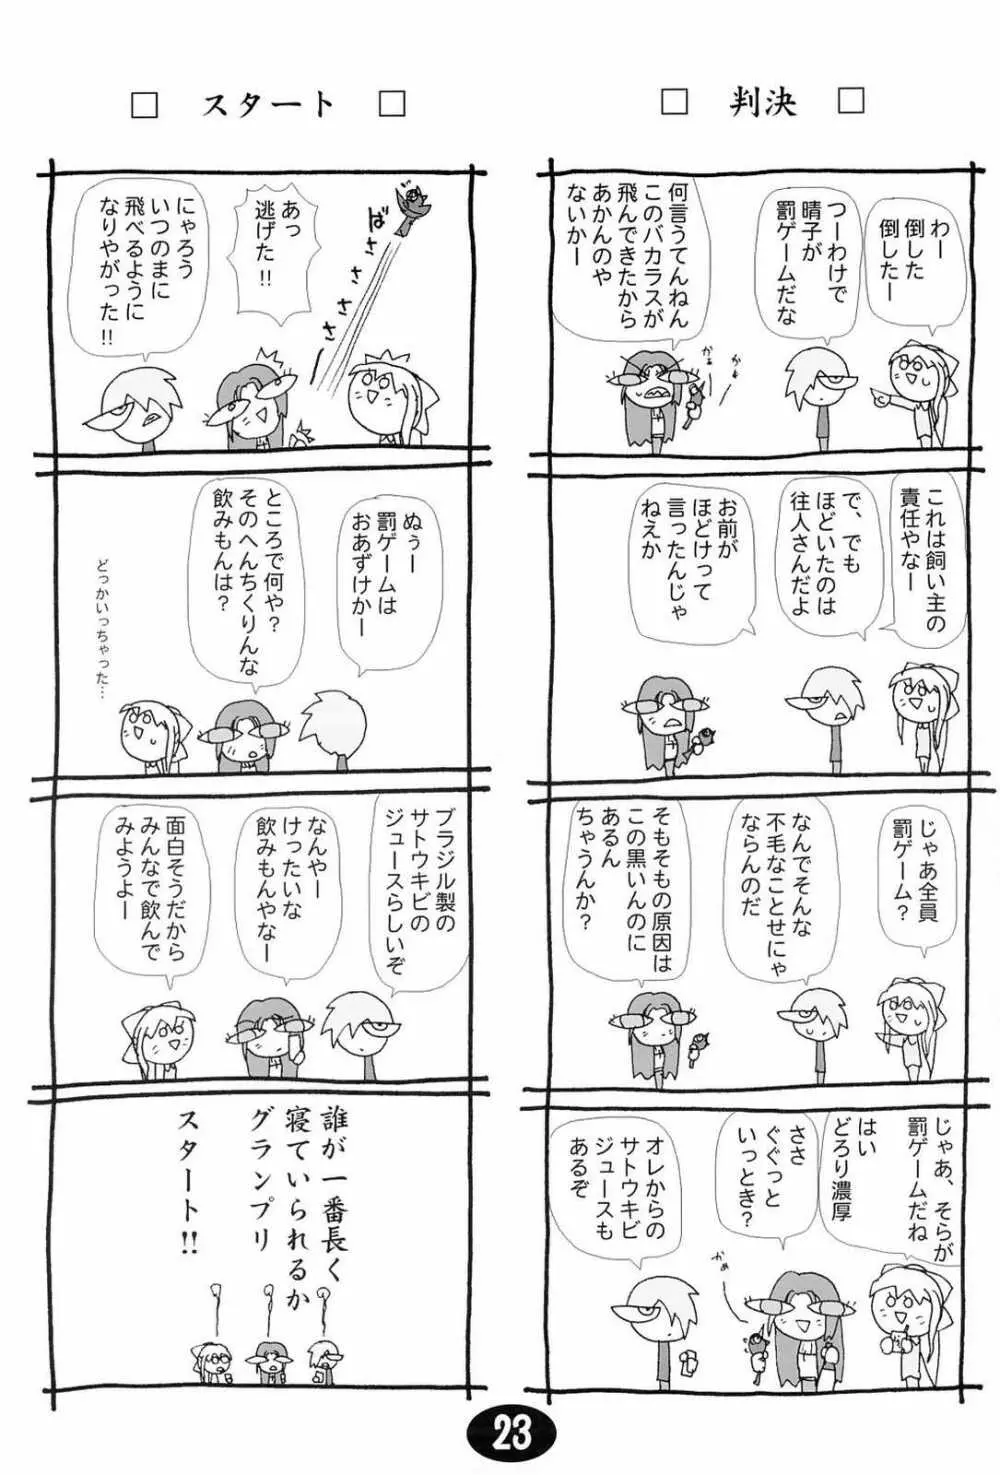 □ 判決 □
わー
倒した
倒したー
つーわけで
晴子が
罰ゲームだな
何言うてんねん
このバカラスが
飛んできたから
あかんのや
ないかー
かぁ
かぁ
これは飼い主の
責任やなー
で、でも
ほどいたのは
往人さんだよ
お前が
ほどけって
言ったんじゃ
ねえか
じゃあ全員
罰ゲーム?
なんでそんな
不毛なことせにゃ
ならんのだ
そもそもの原因は
この黒いんのに
あるん
ちゃうんか?
じゃあ、そらが
罰ゲームだね
はい
どろり濃厚
ささ
ぐぐっと
いっとき?
かぁ
オレからの
サトウキビ
ジュースも
あるぞ
□ スタート □
ばさささささ
あっ
逃げた!!
にゃろう
いつのまに
飛べるように
なりやがった!!
ぬぅー
罰ゲームは
おあずけかー
ところで何や?
そのへんちくりんな
飲みもんは?
どっかいっちゃった…
ブラジル製の
サトウキビの
ジュースらしいぞ
なんやー
けったいな
飲みもんやなー
面白そうだから
みんなで飲んで
みようよー
誰が一番長く
寝ていられるか
グランプリ
スタート!!
23